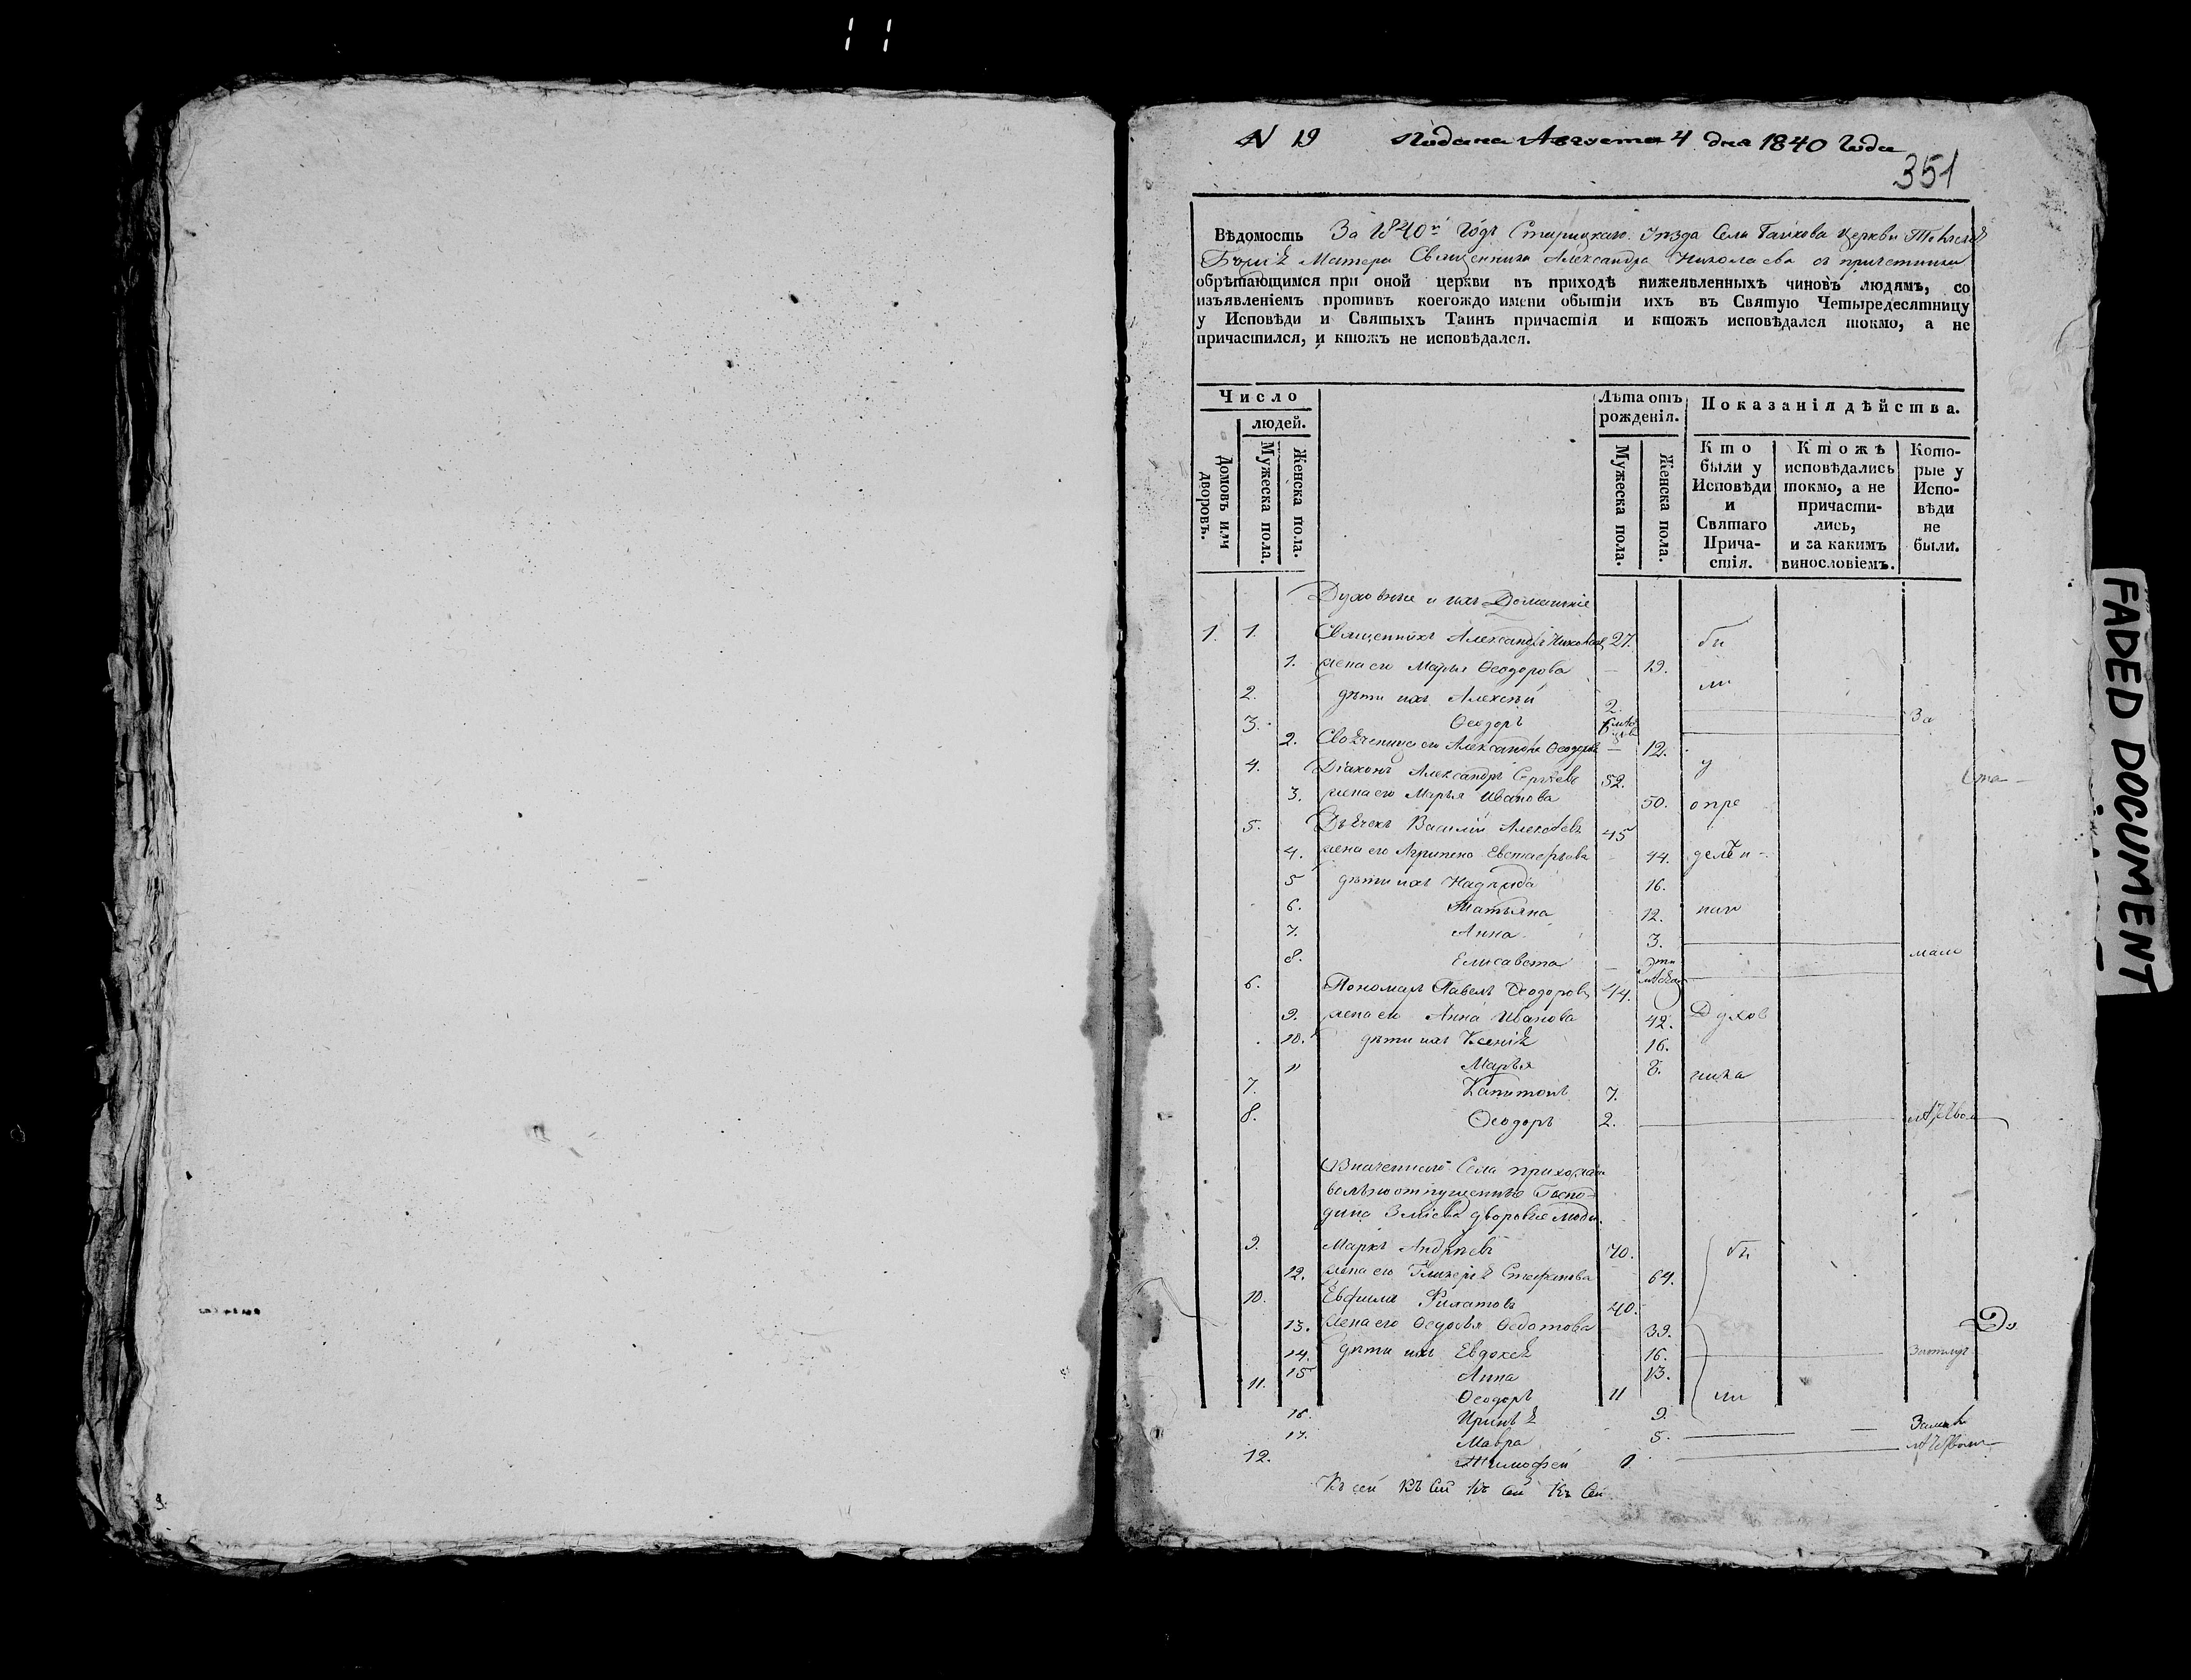 N 19 Подана Августа 4 дня 1840 Года
351
Вѣдомость За 1840й Годъ Старицкаго Уѣзда Села Церкви
Божіей Матери Священника Александра Николаева съ причетники
обрѣтающимся при оной церкви въ приходѣ нижеявленныхъ чиновъ людямъ, со
изъявленіемъ противъ коегождо имени обытіи ихъ въ Святую Четыредесятницу
у Исповѣди и Святыхъ Таинъ причастія и ктожъ исповѣдался токмо, а не
причастился, и ктожъ не исповѣдался.
Число
людей.
Домовъ или дворовъ.
Мужеска пола.
Женска пола.
Лѣта отъ рожденія.
Мужеска пола.
Женска пола.
Показанія дѣйства.
Кто были у Исповѣди и Святаго Прича-стія.
Ктожъ исповѣдались токмо, а не причасти-лись, и за какимъ винословіемъ.
Кото-рые у Испо-вѣди не были.
Духовные и ихъ Домашніе
1. 1. Священникъ Александръ Николаевъ 27. бы
1. жена его Марья Ѳеодорова 19.
2. дѣти ихъ Алексѣй 2. ли
3. Ѳеодоръ 6 За
2. Свояченица его Александра Ѳеодорова 12.
4. Діаконъ Александръ Сергѣевъ 52. у
3. жена его Марья Иванова 50. опре
5. Дьячекъ Василій Алексѣевъ 45
4. жена его Агрипена Евстафьева 44. делен-
5 дѣти ихъ Надежда 16.
6. Татьяна 12. наго
7. Анна 3.
8. Елисавета мало
6. Пономарь Павелъ Ѳеодоровъ 44.
9. жена его Анна Иванова 42. Духов
10. дѣти ихъ Ксенія 16.
11 Марья 8. ника
7. Капитонъ 7.
8. Ѳеодоръ 2. лѣтствомъ
Означеннаго Села прихожане
вольноотпущенные Госпо-
дина Змѣева дворовые люди.
9. Маркъ Андреевъ 70. бы
12. жена его Гликерія Стефанова 64.
10. Евфимъ Филатовъ 40.
13. жена его Ѳедосья Ѳедотова 39.
14. дѣти ихъ Евдокея 16.
15 Анна 13.
11. Ѳеодоръ 11 ли
16. Иринья 9.
17. Мавра 5. Замало
12. Тимофей 1 лѣтствомъ
Къ сей Къ Сей Къ Сей Къ Сей
FADED DOCUMENT